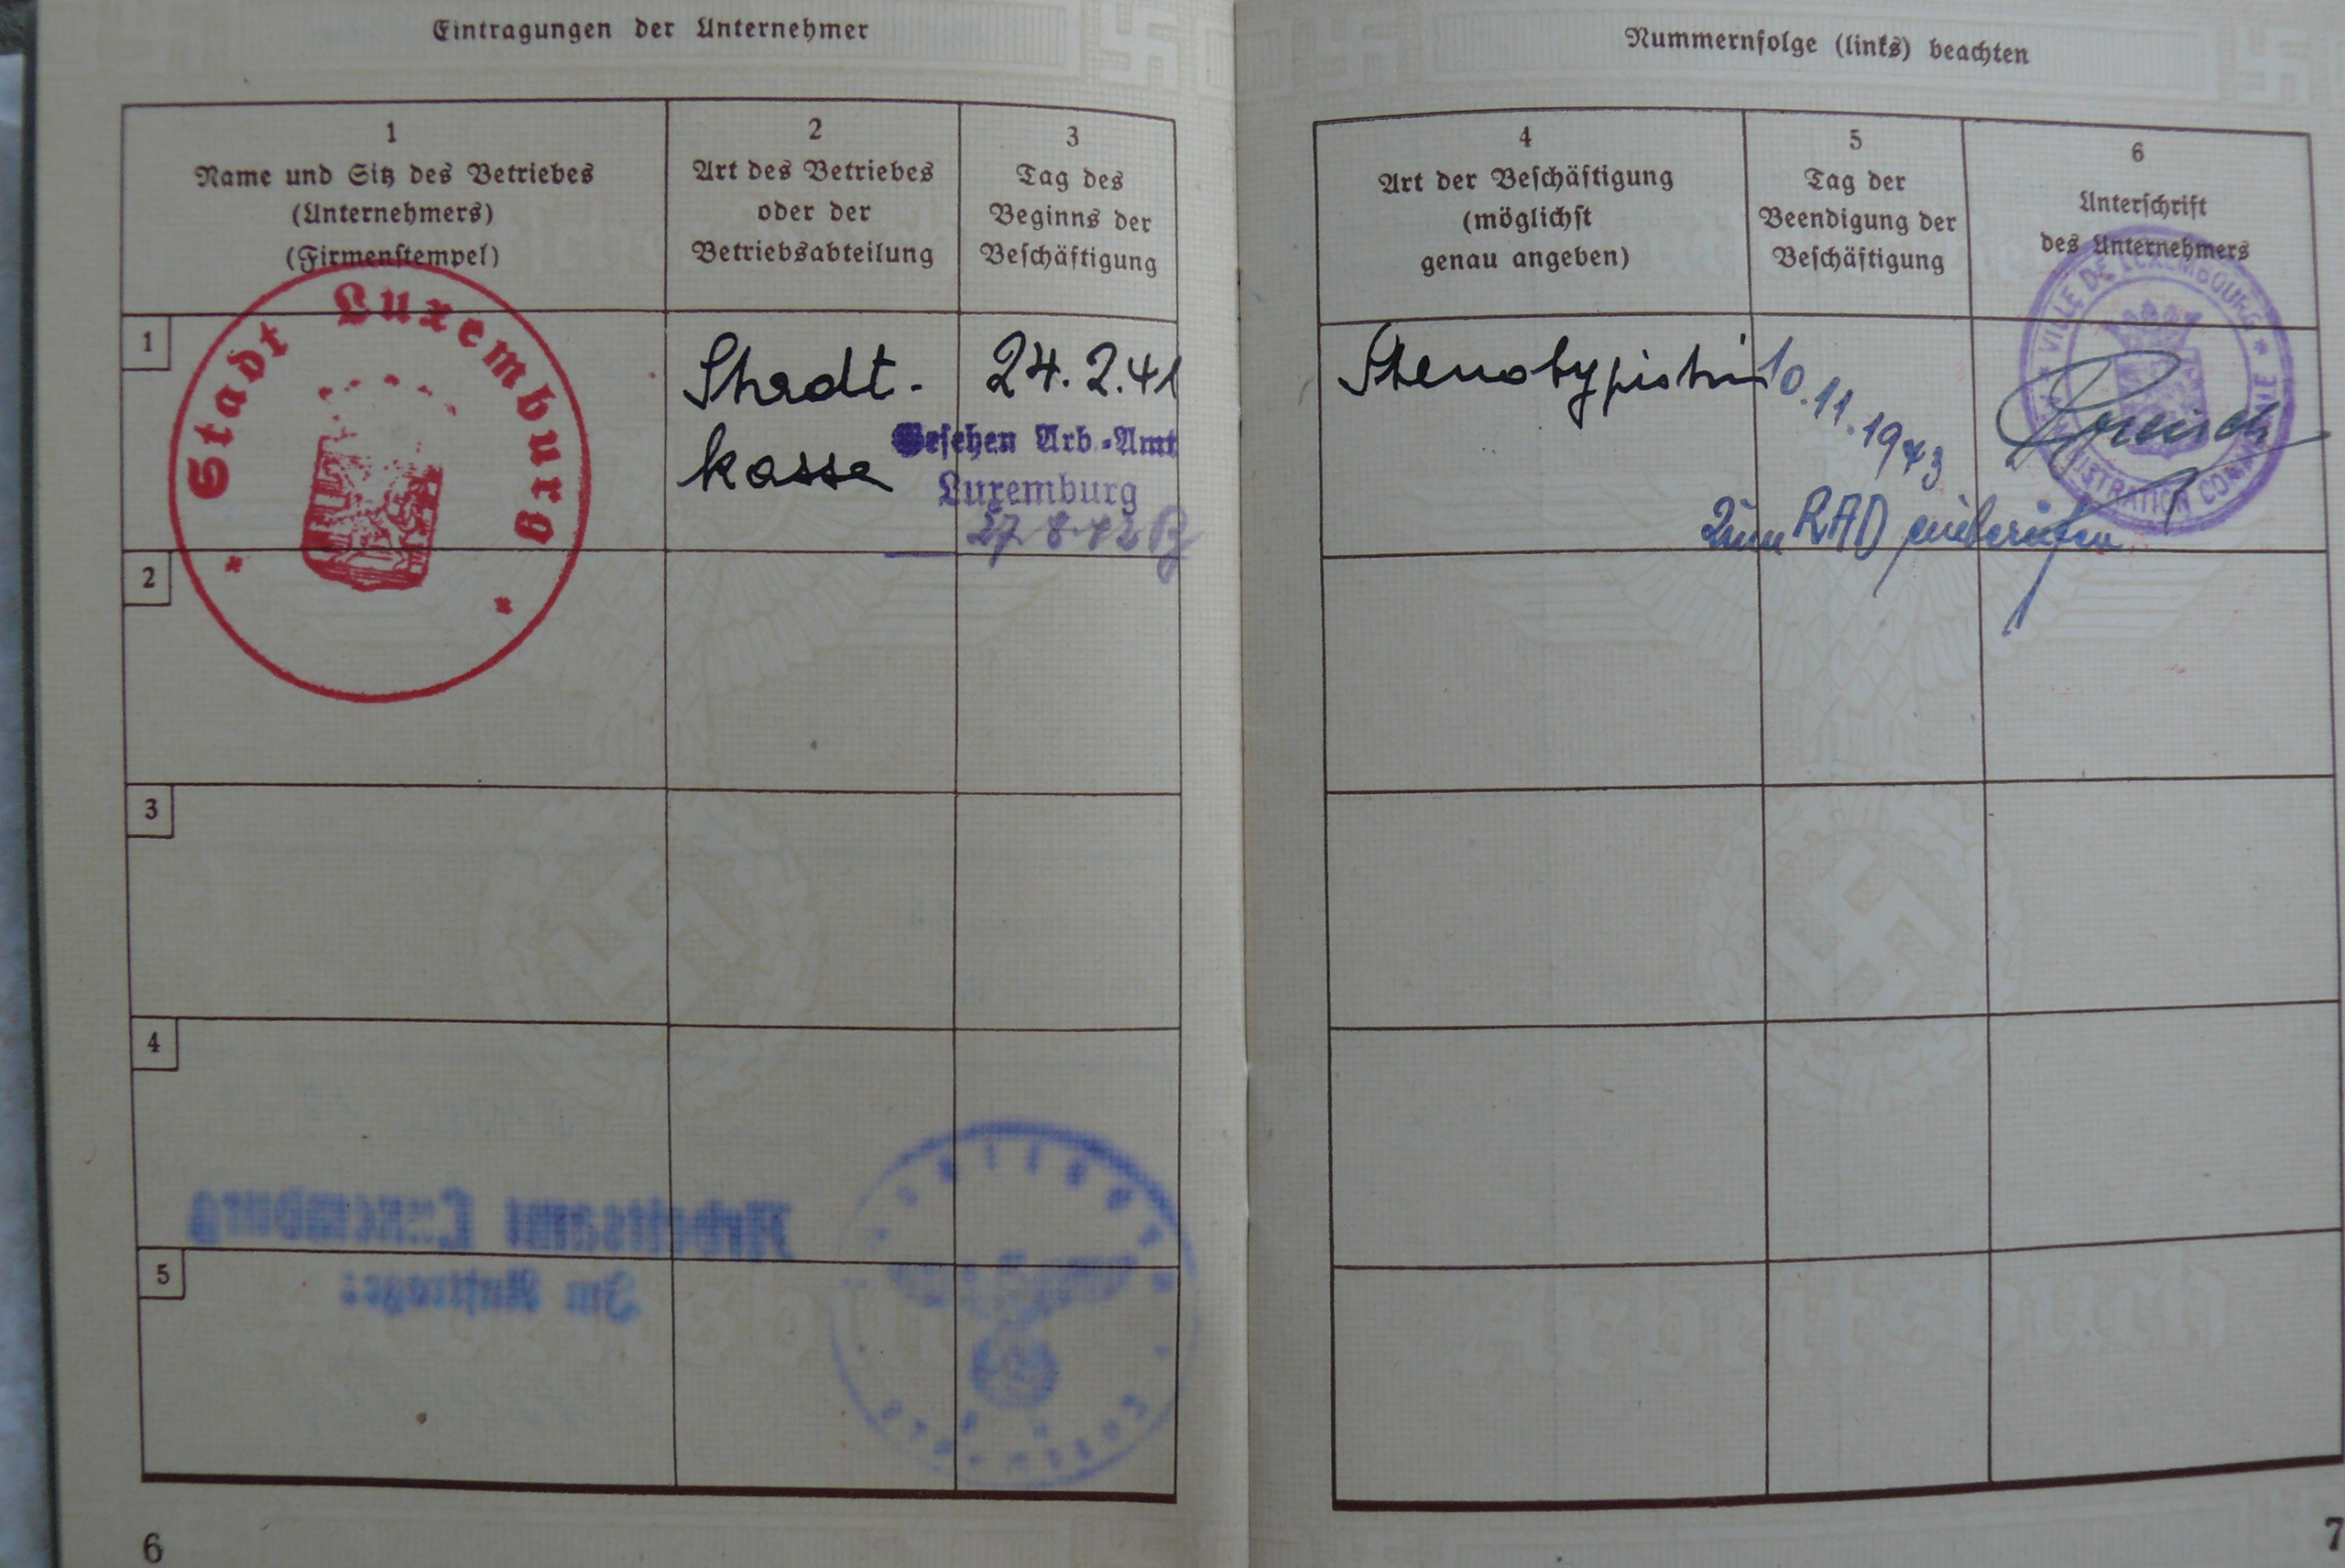 Eintragungen der Unternehmer
1
Name und Sitz des Betriebes
(Unternehmers)
(Firmenstempel)
2
Art des Betriebes
oder der
Betriebsabteilung
3
Tag des
Beginns der
Beschäftigung
1
Stadt Luxemburg
Stadt-
kasse
24.2.41
Gesehen Arb.-Amt
Luxemburg
27.8.42
2
3
4
Arbeitsamt Luxemburg
5
Im Auftrage:
6
Nummernfolge (links) beachten
4
Art der Beschäftigung
(möglichst
genau angeben)
5
Tag der
Beendigung der
Beschäftigung
6
Unterschrift
des Unternehmers
Stenotypistin
10.11.1943
VILLE DE LUXEMBOURG
ADMINISTRATION COMMUNALE
Zum RAD einberufen
7